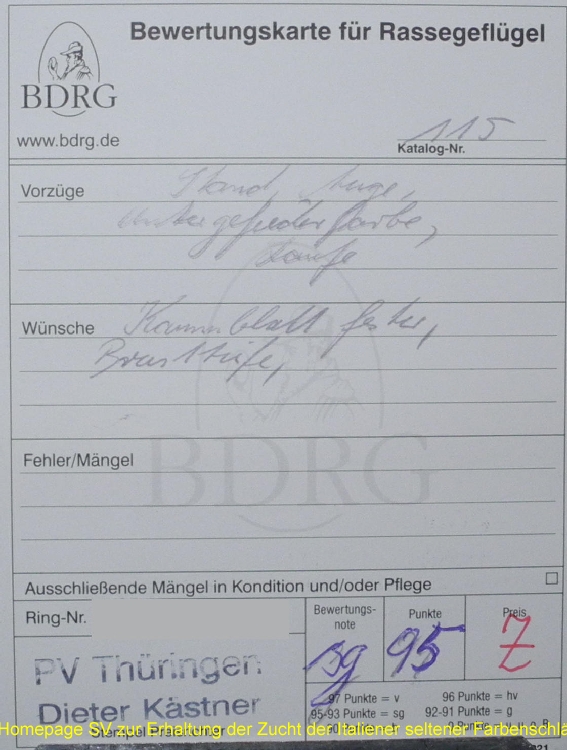 Bewertungskarte für Rassegeflügel
BDRG
www.bdrg.de
115
Katalog-Nr.
Vorzüge Stand, Auge,
Untergefiederfarbe,
Läufe
Wünsche Kammblatt fester,
Brusttiefe,
BDRG
Fehler/Mängel
Ausschließende Mängel in Kondition und/oder Pflege
Ring-Nr.
Bewertungs-
note
Punkte
Preis
sg 95 Z
PV Thüringen
Dieter Kästner
97 Punkte = v 96 Punkte = hv
95-93 Punkte = sg 92-91 Punkte = g
Homepage SV zur Erhaltung der Zucht der Italiener seltener Farbenschlä